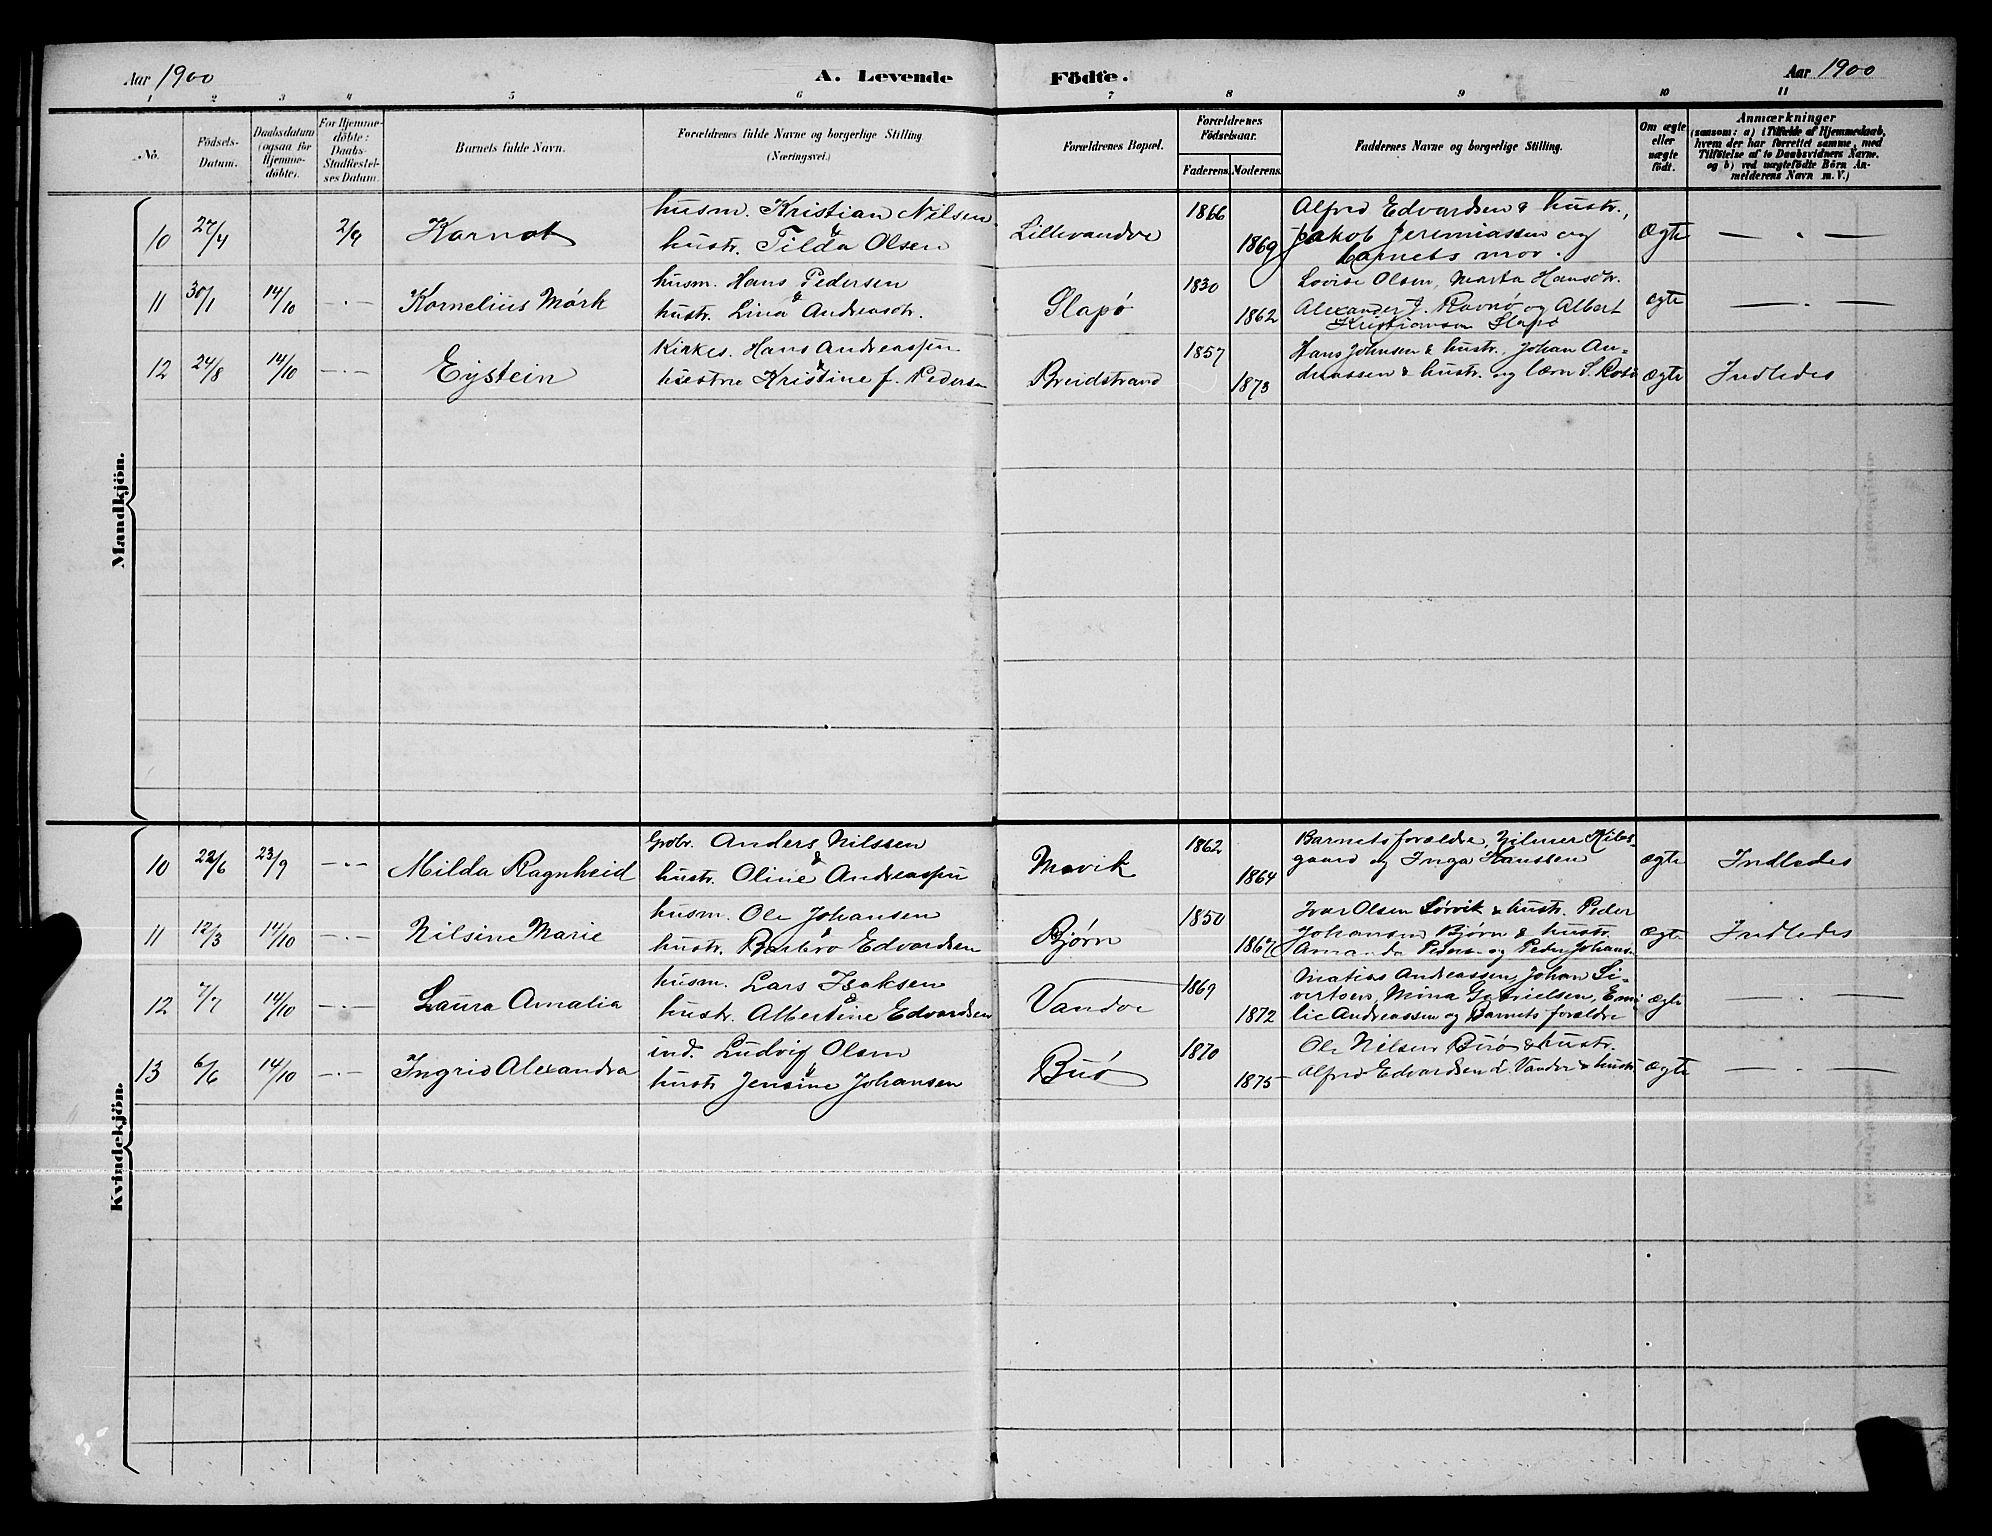 Aar 1900
A. Levende Födte.
Aar 1900
1 2 3 4 5 6 7 8 9 10 11
No.
Födsels-
Datum.
Daabsdatum
(ogsaa for
Hjemme-
döbte).
For Hjemme-
döbte:
Daabs-
Stadfæstel-
ses Datum.
Barnets fulde Navn.
Forældrenes fulde Navne og borgerlige Stilling
(Næringsvei.)
Forældrenes Bopæl.
Forældrenes
Födselsaar.
Faderens. Moderens.
Faddernes Navne og borgerlige Stilling.
Om ægte
eller
uægte
födt.
Anmærkninger
(saasom: a) i Tilfælde af Hjemmedaab,
hvem der har forrettet samme, med
Tilföielse af to Daabsvidners Navne,
og b) ved uægtefödte Börn An-
melderens Navn m. V.)
Mandkjön.
10 27/4 2/9 Karnot
husm. Kristian Nilsen
& hustr. Tilda Olsen
Lillevandve 1866 1869
Alfred Edvardsen & hustr.,
Jakob Jeremiassen og
barnets mor.
Ægte — „ —
11 30/1 14/10 — „ — Kornelius Mörk
husm. Hans Pedersen
& hustr. Lina Andreasdtr.
Slapø 1830 1862
Lovise Olsen, Marta Hansdtr.
Alexander J. Ravnø og Albert
Kristiansen Slapø
ægte — „ —
12 24/8 14/10 — „ — Eystein
Kirkes. Hans Andreassen
& hustrue Kristine f. Peders
Breidstrand 1857 1873
Hans Johnsen & hustr., Johan An-
dreassen & hustr. og lærer S.
ægte Indledes
Kvindekjön.
10 22/6 23/9 — „ — Milda Ragnheid
Grdbr. Anders Nilssen
& hustr. Oline Andreassen
Mevik 1862 1864
Barnets forældre, Hilmer Kils-
gaard og Inga Hanssen
ægte Indledes
11 12/3 14/10 — „ — Nilsine Marie
husm. Ole Johansen
& hustr. Barbro Edvardsen
Bjørn 1850 1867
Ivar Olsen Sørvik & hustr. Peder
Johansen Bjørn & hustr.
Amanda Peders. og Peder Johans.
ægte Indledes
12 7/7 14/10 — „ — Laura Amalia
husm. Lars Isaksen
& hustr. Albertine Edvardsen
Vandve 1869 1872
Matias Andreassen, Johan Si-
vertsen, Mina Gabrielsen, Emi-
lie Andreassen og Barnets forældre
ægte — „ —
13 6/6 14/10 — „ — Ingrid Alexandra
ind. Ludvig Olsen
& hustr Jensine Johansen
Buø 1870 1875
Ole Nilsen Buø & hustr.
Alfred Edvardsen L. Vandve & hustr
ægte — „ —